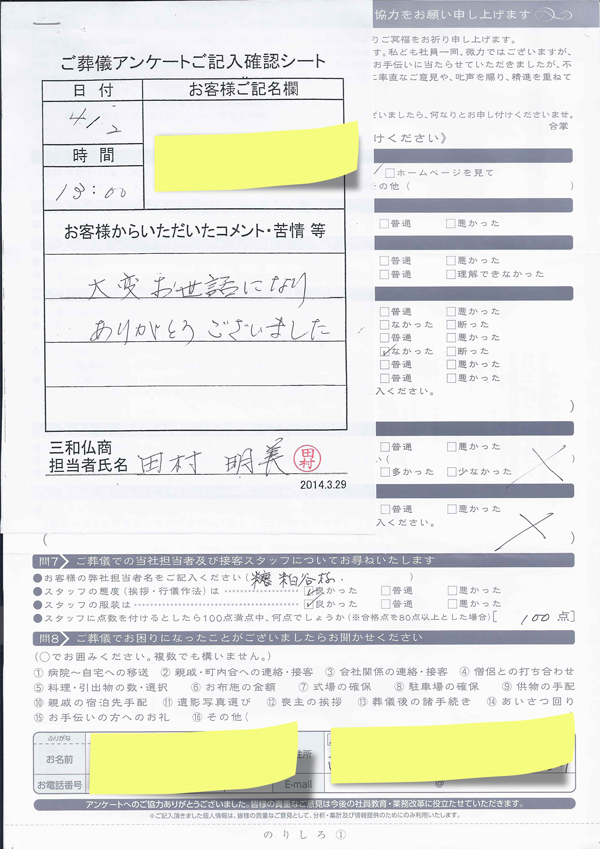 協力をお願い申し上げます
ご葬儀アンケートご記入確認シート
日付
お客様ご記名欄
4/2
時間
13:00
お客様からいただいたコメント・苦情 等
大変お世話になり
ありがとうございました
三和仏商
担当者氏名 田村 明美 田村
2014.3.29
りご冥福をお祈り申し上げます。
す。私ども社員一同、微力ではございますが、
お手伝いに当たらせていただきましたが、不
に率直なご意見や、叱声を賜り、精進を重ねて
ざいましたら、何なりとお申し付けくださいませ。
合掌
けください》
□ホームページを見て
その他( )
□普通 □悪かった
□普通 □悪かった
□普通 □理解できなかった
□普通 □悪かった
□なかった □断った
□普通 □悪かった
☑なかった □断った
□普通 □悪かった
□普通 □悪かった
入ください。
)
□普通 □悪かった
□多かった □少なかった
□普通 □悪かった
入ください。
( )
問7 ご葬儀での当社担当者及び接客スタッフについてお尋ねいたします
●お客様の弊社担当者名をご記入ください( 粕谷様. )
●スタッフの態度(挨拶・行儀作法)は ☑良かった □普通 □悪かった
●スタッフの服装は ☑良かった □普通 □悪かった
●スタッフに点数を付けるとしたら100点満点中、何点でしょうか(※合格点を80点以上とした場合)[ 100 点]
問8 ご葬儀でお困りになったことがございましたらお聞かせください
(○でお囲みください。複数でも構いません。)
① 病院~自宅への移送 ② 親戚・町内会への連絡・接客 ③ 会社関係の連絡・接客 ④ 僧侶との打ち合わせ
⑤ 料理・引出物の数・選択 ⑥ お布施の金額 ⑦ 式場の確保 ⑧ 駐車場の確保 ⑨ 供物の手配
⑩ 親戚の宿泊先手配 ⑪ 遺影写真選び ⑫ 喪主の挨拶 ⑬ 葬儀後の諸手続き ⑭ あいさつ回り
⑮ お手伝いの方へのお礼 ⑯ その他( )
ふりがな
お名前
住所
お電話番号
E-mail
@
アンケートへのご協力ありがとうございました。皆様の貴重なご意見は今後の社員教育・業務改革に役立たせていただきます。
※ご記入頂きました個人情報は、皆様の貴重なご意見として、分析・集計及び情報提供のためにのみ利用いたします。
のりしろ①